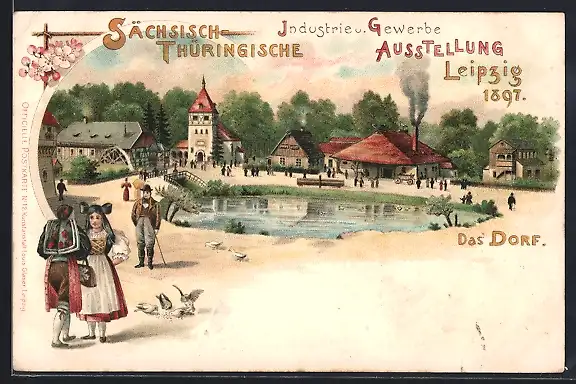 SÄCHSISCH-
THÜRINGISCHE
Industrie u. Gewerbe
AUSSTELLUNG
Leipzig
1897.
DAS DORF.
OFFICIELLE POSTKARTE No 13 Kunstanstalt Louis Glaser Leipzig.